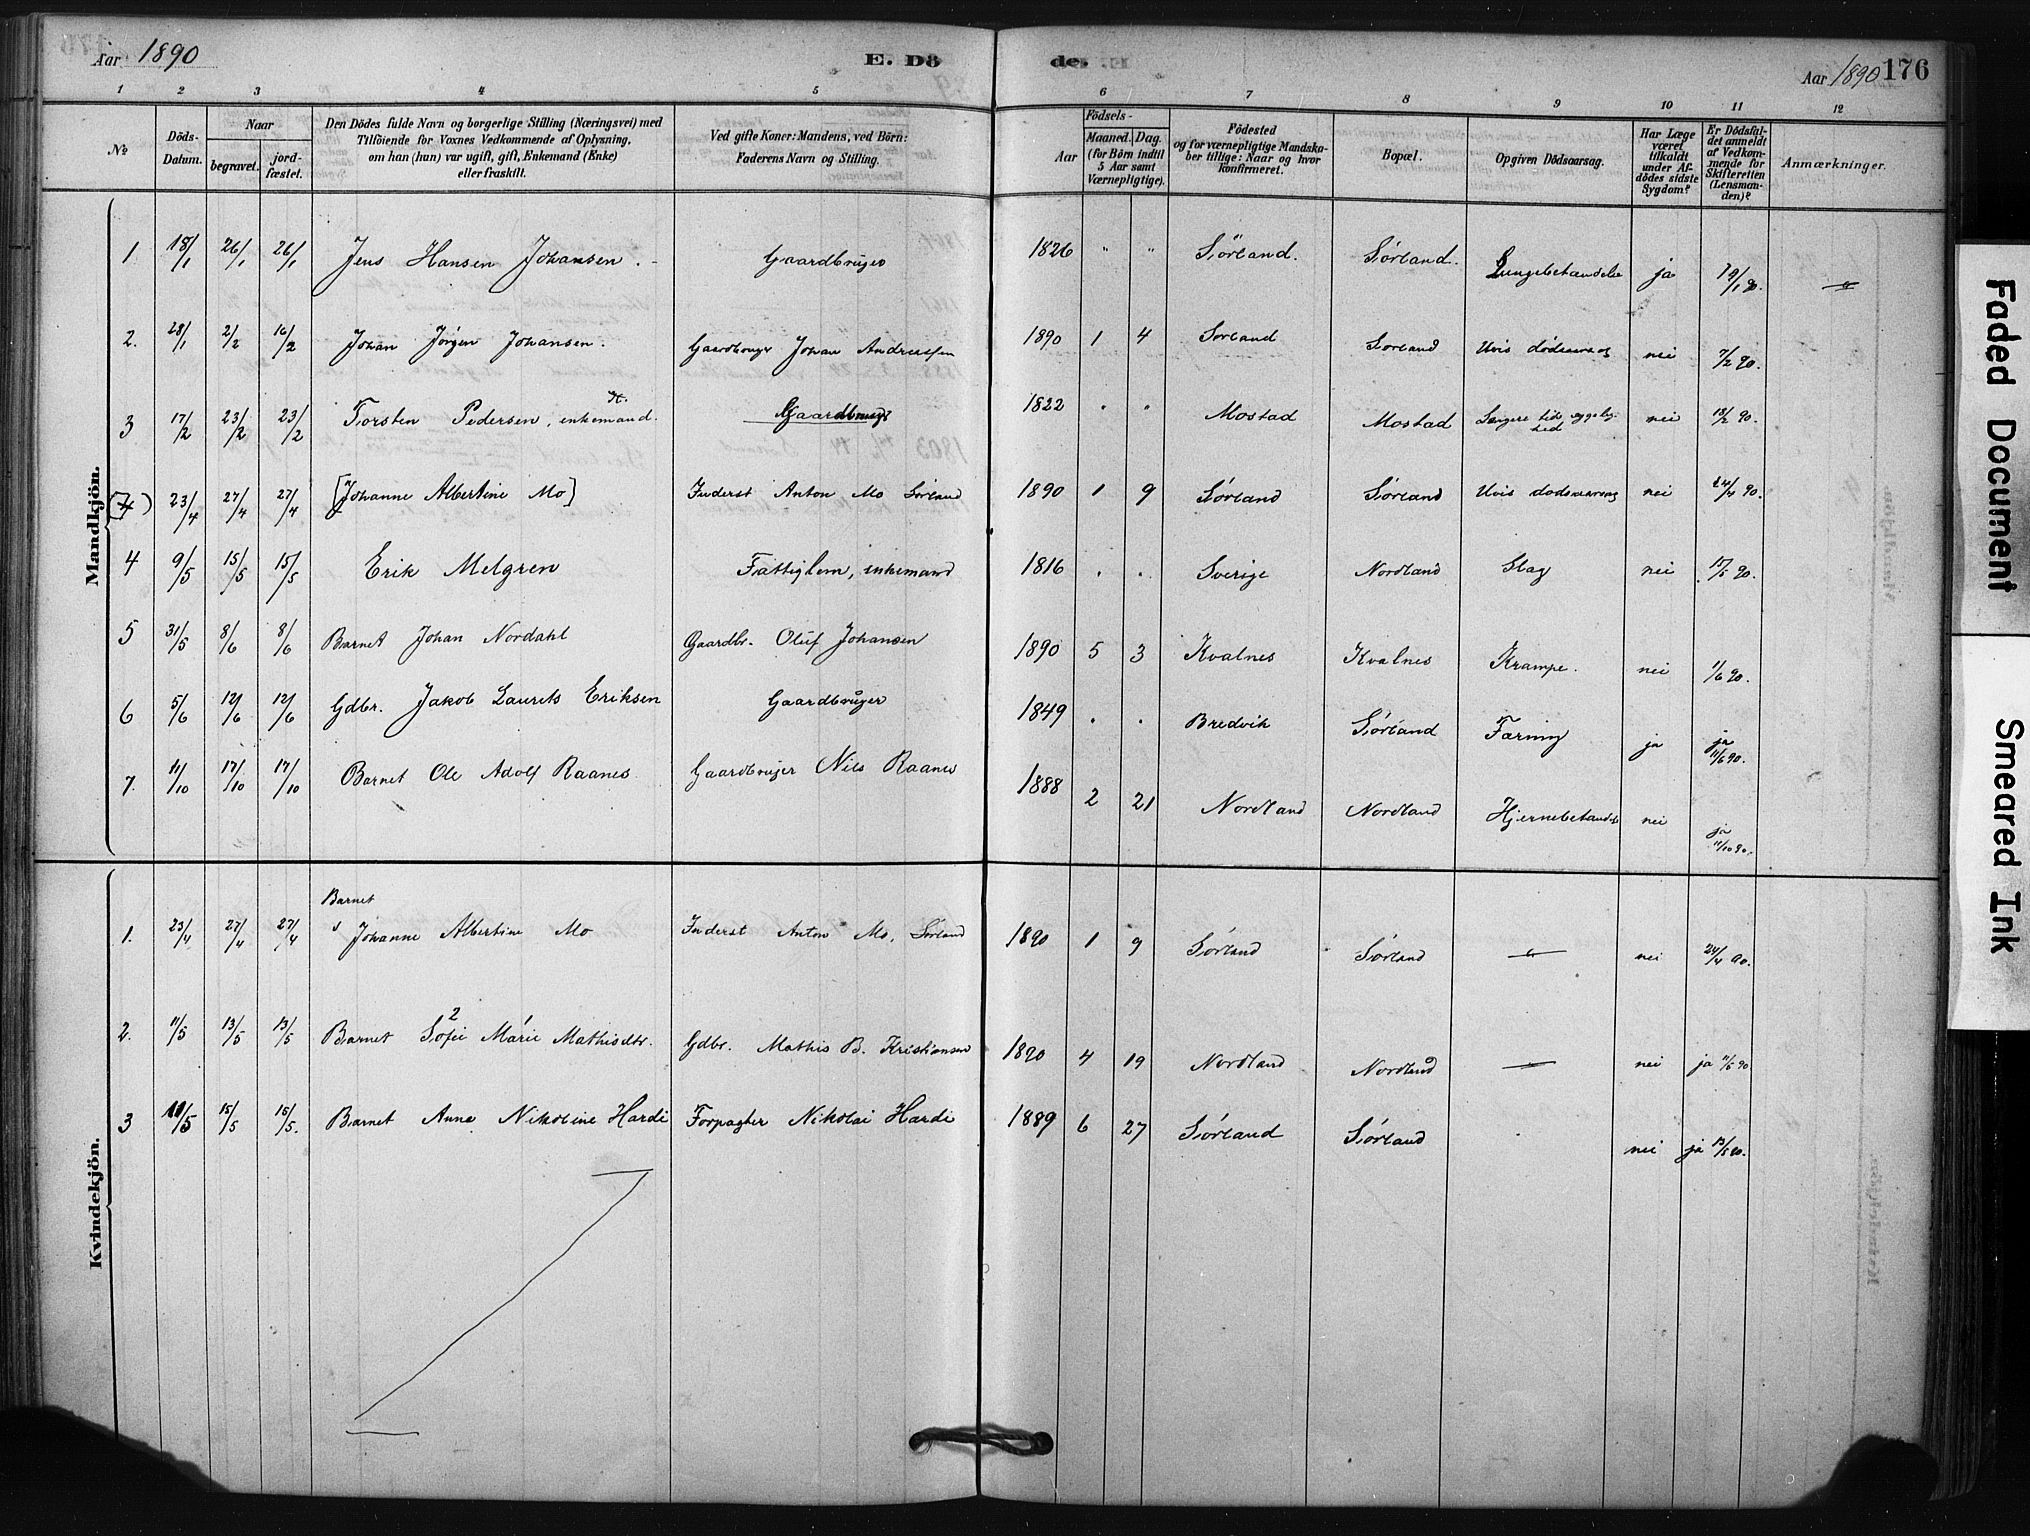 Aar 1890 E. Dö de. Aar 1890 176
1 2 3 4 5 6 7 8 9 10 11 12
No.
Döds-Datum.
Naar
begravet.
jord-fæstet.
Den Dödes fulde Navn og borgerlige Stilling (Næringsvei) med
Tilföiende for Voxnes Vedkommende af Oplysning,
om han (hun) var ugift, gift, Enkemand (Enke)
eller fraskilt.
Ved gifte Koner: Mandens, ved Börn:
Faderens Navn og Stilling.
Födsels-
Aar
Maaned. Dag.
(for Börn indtil
5 Aar samt
Værnepligtige).
Födested
og for værnepligtige Mandska-
ber tillige: Naar og hvor
konfirmeret.
Bopæl.
Opgiven Dödsaarsag.
Har Læge
været
tilkaldt
under Af-
dödes sidste
Sygdom?
Er Dödsfal-
det anmeldt
af Vedkom-
mende for
Skifteretten
(Lensman-
den)?
Anmærkninger.
Mandkjön.
1 18/1 26/1 26/1 Jens Hansen Johansen. Gaardbruger 1826 " " Sörland. Sörland. ja
2. 28/1 2/2 16/2 Johan Jörgen Johansen. Gaardbruger Johan Andreassen 1890 1 4 Sorland Sorland Uvis dödsaarsag nei 7/2 90.
3 17/2 23/2 23/2 Torsten Pedersen, enkemand. Gaardbrug 1822 " " Mostad Mostad Længere tids nei 18/2 90.
23/4 27/4 27/4 [Johanne Albertine Mo] Inderst Anton Mo Sørland 1890 1 9 Sørland Sørland Uvis dodsaarsag nei 24/4 90.
4 9/5 15/5 15/5 Erik Melgren Fattiglem, enkemand 1816 . . Sverige Nordland Slag nei 15/5 90.
5 31/5 8/6 8/6 Barnet Johan Nordahl Gaardbr. Oluf Johansen 1890 5 3 Kvalnes Kvalnes Krampe. nei 1/6 90.
6 5/6 12/6 12/6 Gdbr. Jakob Laurets Eriksen Gaardbruger 1849 . . Bredvik Sørland Tæring ja ja 11/6 90.
7. 11/10 17/10 17/10 Barnet Ole Adolf Raanes. Gaardbruger Nils Raanes 1888 2 21 Nordland Nordland nei ja 11/10 90.
Kvindekjön.
Barnet
1. 23/4 27/4 27/4 Johanne Albertine Mo Inderst Anton Mo, Sørland 1890 1 9 Sørland Sørland —"— nei 24/4 90.
2
2. 11/5 13/5 13/5 Barnet Sofie Marie Mathisdtr. Gdbr. Mathis B. Kristiansen 1890 4 19 Nordland Nordland —"— nei ja 11/5 90
3 11/5 15/5 15/5. Barnet Anna Nikoline Hardi Forpagter Nikolai Hardi 1889 6 27 Sørland Sørland nei ja 13/5 90.
Faded Document
Smeared Ink